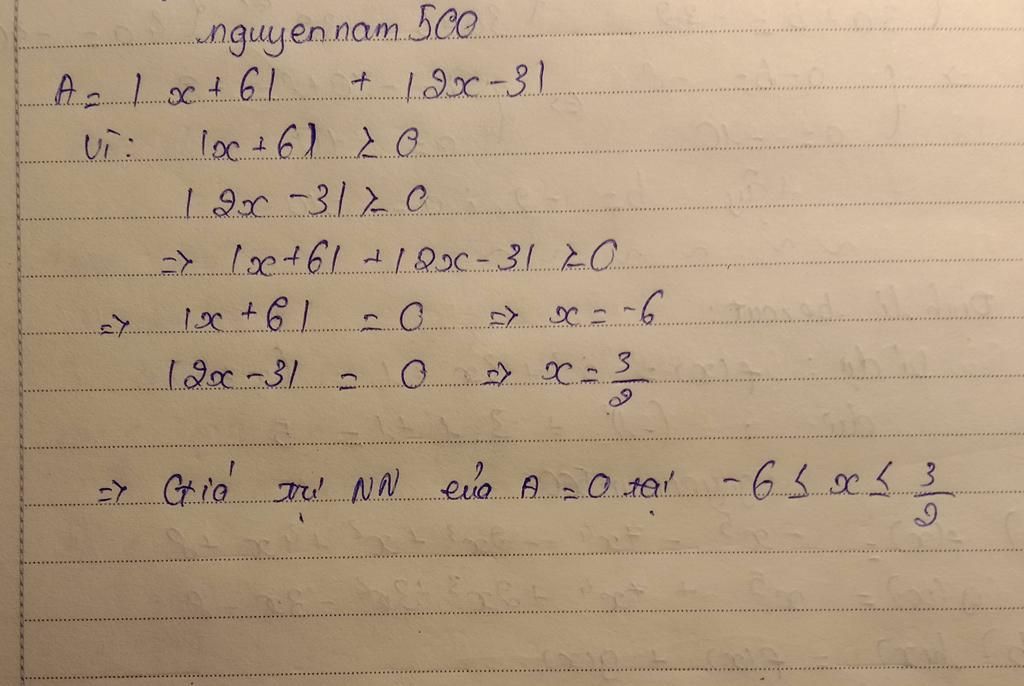 nguyennam500
A = |x + 6| + |2x - 3|
Vì: |x + 6| ≥ 0
|2x - 3| ≥ 0
=> |x + 6| + |2x - 3| ≥ 0
=> |x + 6| = 0 => x = -6
|2x - 3| = 0 => x = 3/2
=> Giá trị NN của A = 0 tại -6 ≤ x ≤ 3/2